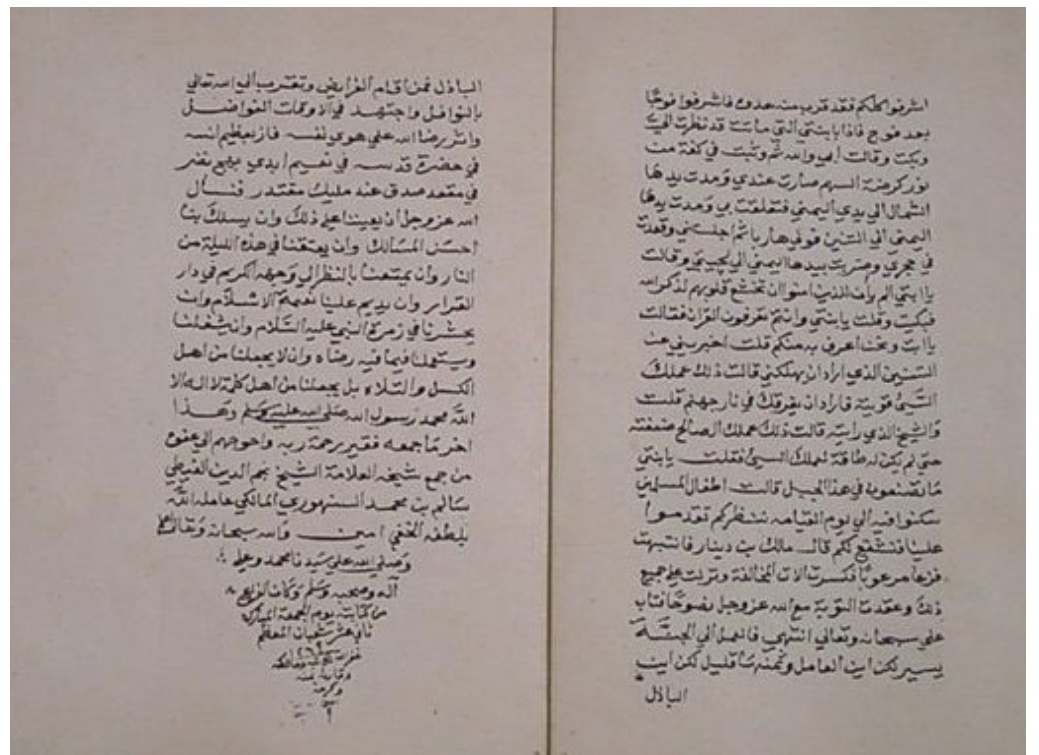 اشرفوا كلكم فقد قرب منه عدوه فاشرفوا فوجا
بعد فوج فاذا بابنتي التي ماتت قد نظرت الي
وبكت وقالت ابي والله ثم وثبت في كفة من
نور كرمية السهم صارت عندي ومدت يدها
الشمال الي يدي اليمني فتعلقت بي ومدت يدها
اليمني الي التنين فولي هاربا ثم اجلستني وقعدت
في حجري وضربت بيدها اليمني الي لحيتي وقالت
يا ابتي الم يأن للذين امنوا ان تخشع قلوبهم لذكر الله
فبكيت وقلت يا بنتي وانتم تعرفون القران فقالت
يا ابت ونحن اعرف به منكم قلت اخبريني عن
التنين الذي اراد ان يهلكني قالت ذلك عملك
السيئ قويته فاراد ان يغرقك في نار جهنم قلت
والشيخ الذي رايته قالت ذلك عملك الصالح ضعفته
حتي لم يكن له طاقة لعملك السيئ فقلت يا بنتي
ما تصنعون في هذا الجبل قالت اطفال المسلمين
سكنوا فيه الي يوم القيامه ننتظركم تقدموا
علينا فنشفع لكم قال مالك بن دينار فانتبهت
فزعا مرعوبا فكسرت الات المخالفة وتركت جميع
ذلك وعقدت التوبة مع الله عز وجل نصوحا فتاب
علي سبحانه وتعالي انتهي فالعمل الي الجنة
يسير لكن اين العامل وثمنها قليل لكن اين
الباذل
الباذل فمن اقام الفرايض وتقرب الي الله تعالي
بالنوافل واجتهد في الاوقات الفواضل
واثر رضا الله علي هوي نفسه فاز بعظيم انسه
في حضرة قدسه في نعيم ابدي
في مقعد صدق عند مليك مقتدر فنسأل
الله عز وجل ان يعيننا علي ذلك وان يسلك بنا
احسن المسالك وان يعتقنا في هذه الليلة من
النار وان يمتعنا بالنظر الي وجهه الكريم في دار
القرار وان يديم علينا نعمة الاسلام وان
يحشرنا في زمرة النبي عليه السلام وان يشغلنا
ويستعملنا فيما فيه رضاه وان لا يجعلنا من اهل
الكسل والتلاه بل يجعلنا من اهل كلمة لا اله الا
الله محمد رسول الله صلي الله عليه وسلم وهذا
اخر ما جمعه فقير رحمة ربه واحوجهم الي عفوه
من جمع شيخه العلامة الشيخ نجم الدين الغيطي
سالم بن محمد السنهوري المالكي عامله الله
بلطفه الخفي امين والله سبحانه وتعالي
وصلي الله علي سيدنا محمد وعلي
آله وصحبه وسلم وكان الفراغ
من كتابته يوم الجمعة المبارك
ثاني عشر شعبان المعظم
وكرمه